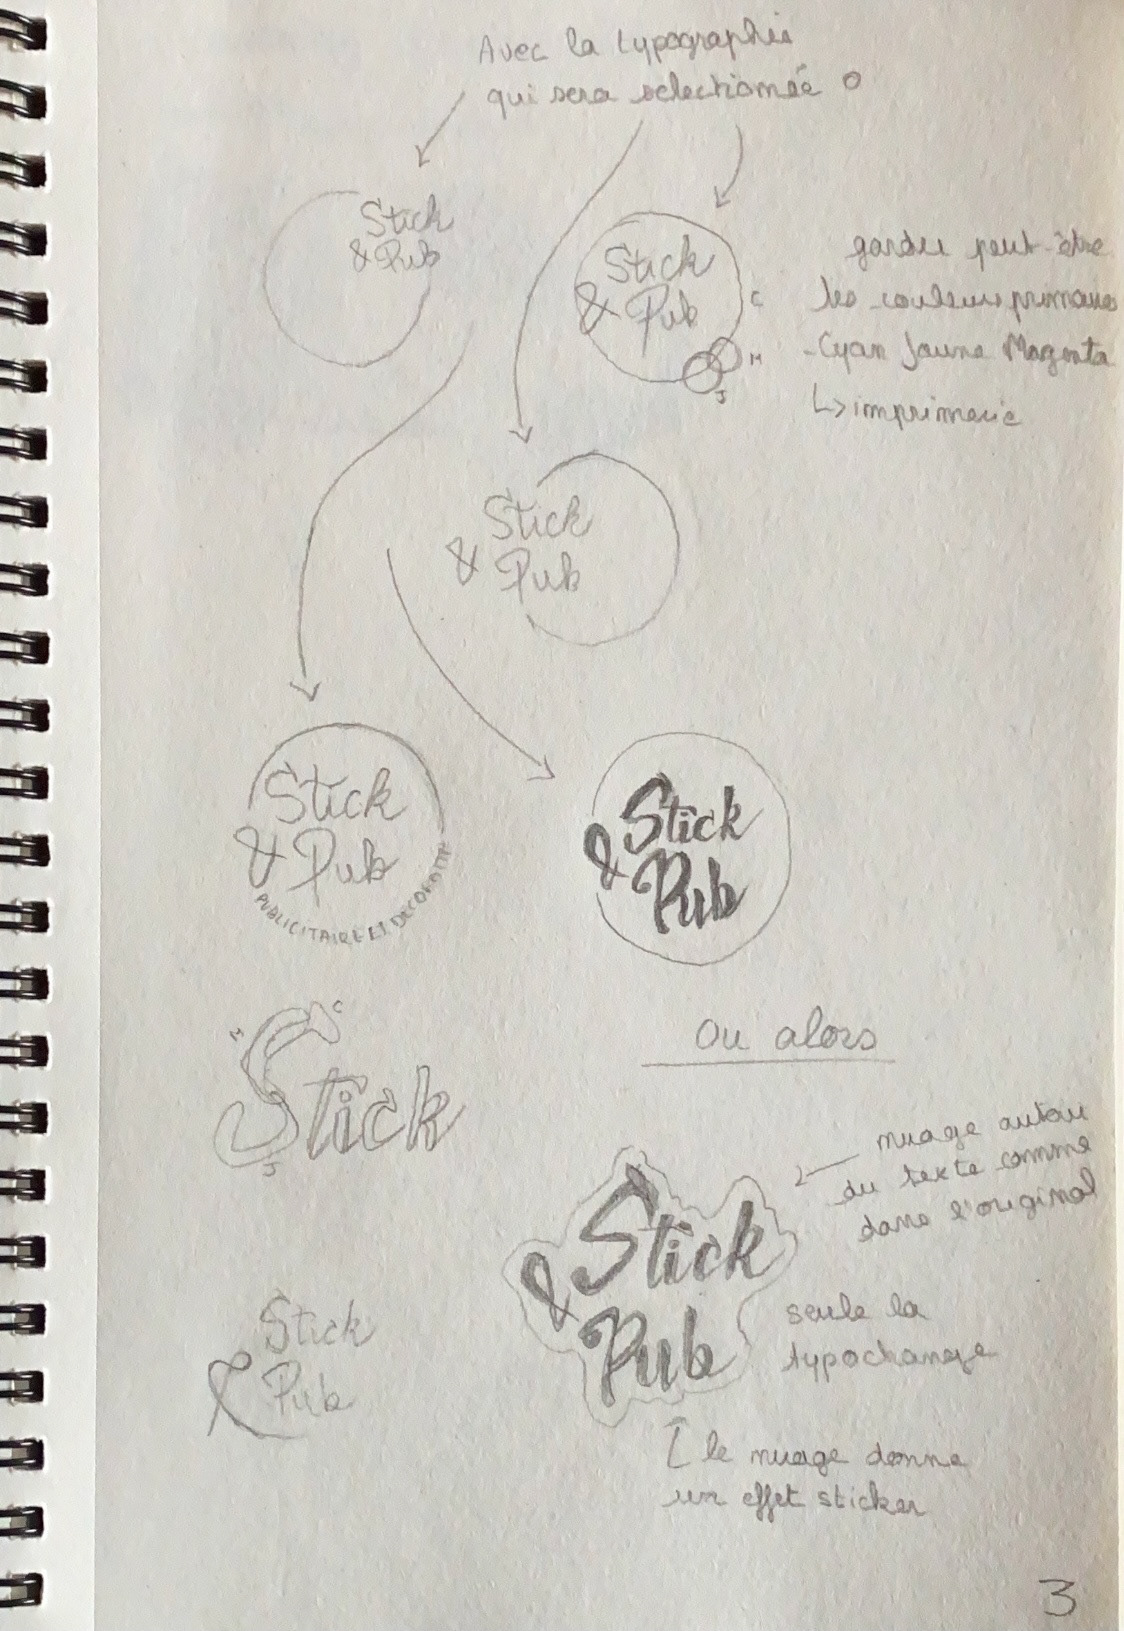 Avec la typographie
qui sera selectionnée o
Stick
& Pub
Stick
& Pub
C
M
J
garder peut-être
les couleurs primaires
-Cyan Jaune Magenta
↳ imprimerie
Stick
& Pub
Stick
& Pub
PUBLICITAIRE ET DECORATIF
Stick
& Pub
Ou alors
M
C
J
Stick
nuage autour
du texte comme
dans l'original
Stick
& Pub
seule la
typo change
Stick
& Pub
le nuage donne
un effet sticker
3